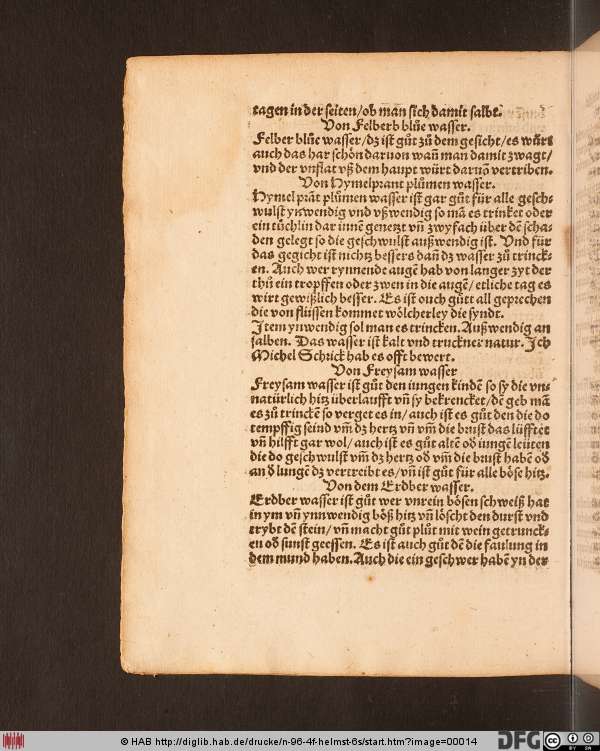 tagen in der seiten/ob man sich damit salbt.
Von Felberb blůe wasser.
Felber blůe wasser/dz ist gůt zů dem gesicht/es würt
auch das har schön daruon wañ man damit zwagt/
vnd der vnflat vß dem haupt würt daruō vertriben.
Von Hymelprant plůmen wasser.
Hymelprāt plůmen wasser ist gar gůt für alle gesch⸗
wulst ynwendig vnd vßwendig so mā es trinket oder
ein tůchlin dar innē genetzt vñ zwyfach über dē scha⸗
den gelegt so die geschwulst außwendig ist. Vnd für
das gegicht ist nichtz bessers dañ dz wasser zů trinck⸗
en. Auch wer rynnende augē hab von langer zyt der
thů ein tropffen oder zwen in die augē/etliche tag es
wirt gewißlich besser. Es ist ouch gůtt all geprechen
die von flüssen kommet wölcherley die syndt.
Item ynwendig sol man es trincken. Außwendig an
salben. Das wasser ist kalt vnd truckner natur. Ich
Michel Schrick hab es offt bewert.
Von Freysam wasser
Freysam wasser ist gůt den iungen kindē so sy die vn⸗
natürlich hitz überlaufft vñ sy bekrencket/dē geb mā
es zů trinckē so verget es in/auch ist es gůt den die do
tempffig seind vm̄ dz hertz vñ vm̄ die brust das lüfftet
vñ hilfft gar wol/auch ist es gůt altē od̄ iungē leüten
die do geschwulst vm̄ dz hertz od̄ vm̄ die brust habē od̄
an d̄ lungē dz vertreibt es/vñ ist gůt für alle böse hitz.
Von dem Erdber wasser.
Erdber wasser ist gůt wer vnrein bösen schweiß hat
in ym vñ ynnwendig böß hitz vñ löscht den durst vnd
trybt dē stein/vñ macht gůt plůt mit wein getrunck⸗
en od̄ sunst geessen. Es ist auch gůt dē die faulung in
dem mund haben. Auch die ein geschwer habē yn der
© HAB http://diglib.hab.de/drucke/n-96-4f-helmst-6s/start.htm?image=00014
DFG
CC BY SA